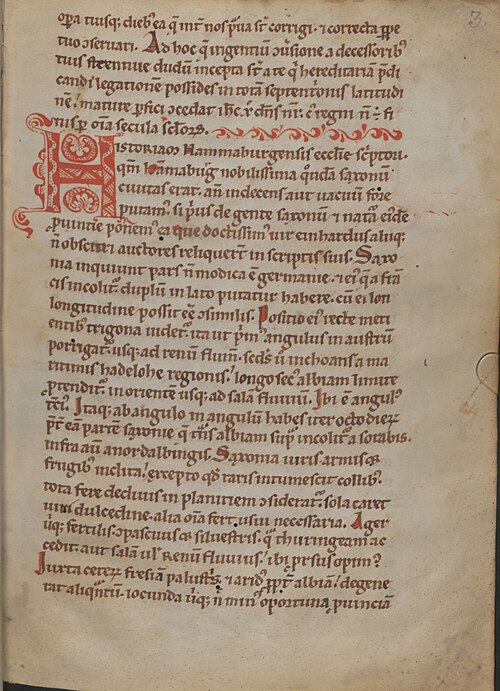 3.
opera tuisq; dieb; ea q̄ int̄ nos p̄ua st̄ corrigi ⁊ correcta ꝑpe
tuo ɔseruari. Ad hoc q̄ ingentiū ɔuersione a decessorib;
tuis strennue dudū incepta st̄ a te q̄ hereditariā p̄di
candi legationē possides in totā septentrionis latitudi
nē mature ꝑfici ɔcedat ih̄c x̄ dn̄s nr̄ c̄ regni n̄ ÷ fi
nis ꝑ oīa secula scloꝝ.
Historiā Hammaburgensis eccl̄ie sc̄ptori.
qm̄ hāmaburg nobilissima qn̄da saxonū
ciuitas erat. an̄ indecens aut vacuū fore
putam᷒. si pius de gente saxonū ⁊ natā eide
ꝓuintie ponem᷒ ea que doctissim᷒ uir einhardus aliiq;
n̄ obscuri auctores reliquerīt in scriptis suis. Saxo
nia inquiunt pars n̄ modica ē germanie. ⁊ ei᷒ q̄ a frā
cis incolit̄. duplū in lato putatur habere. cū ei lon
longitudine possit eē ɔsimilis. Positio ei᷒ recte meti
entib; trigona uidet̄. ita ut p̄m᷒ angulus in austrū
porrigat̄. usq; ad renū fluuiū. scd᷒s ū inchoans a ma
ritimis hadelohe regionis. longo secus albiam limite
ꝓtendit̄. in orientē usq; ad salā fluuiū. Ibi ē angul᷒
t̄ci᷒. Itaq; ab angulo in angulū habes iter octo dieꝝ.
p̄t̄ eā partē saxonie q̄ t̄ns albiam sup̄i᷒ incolit̄ a sorabis.
infra aū anordalbingis. Saxonia uiris armis ⁊
frugib; inclita. excepto qd̄ raris intumescit collib;.
tota fere decliuis in planitiem ɔsiderat̄. sola caret
uini dulcedine. alia oīa fert usui necessaria. Ager
ū iq; fertilis. ɔpascuus ⁊ siluestris. q̄ thuringeam ac
cedit. aut salam ul̄ Renū fluuius. ibi pr̄sus opim᷒.
Iuxta ceterꝝ fresiam palustris. ⁊ arid᷒ ꝓpt̄ albiam. degene
rat aliqn̄tū. iocunda ūiq; n̄ min᷒ oportunaꝝ ꝓuinciā